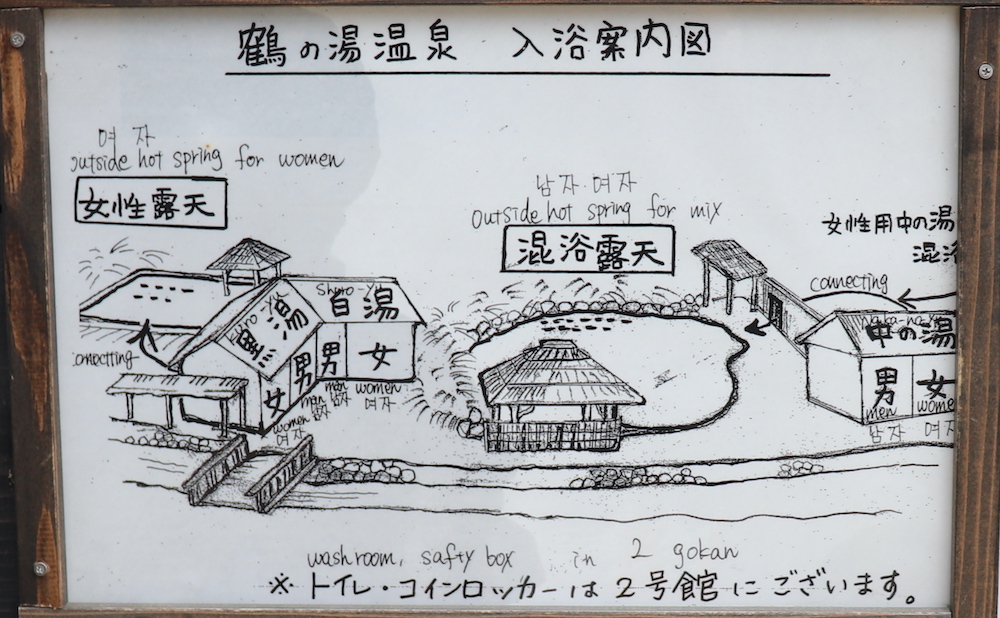 鶴の湯温泉 入浴案内図
여자
outside hot spring for women
女性露天
남자·여자
outside hot spring for mix
混浴露天
女性用中の湯
混浴
connecting
connecting
Shiro-Yu
白湯
Kuro-Yu
黒湯
Naka-no-Yu
中の湯
女
男
男
女
women
여자
men
남자
men
남자
women
여자
男
女
men
women
남자
여자
washroom, safty box in 2 gokan
※ トイレ・コインロッカーは2号館にございます。